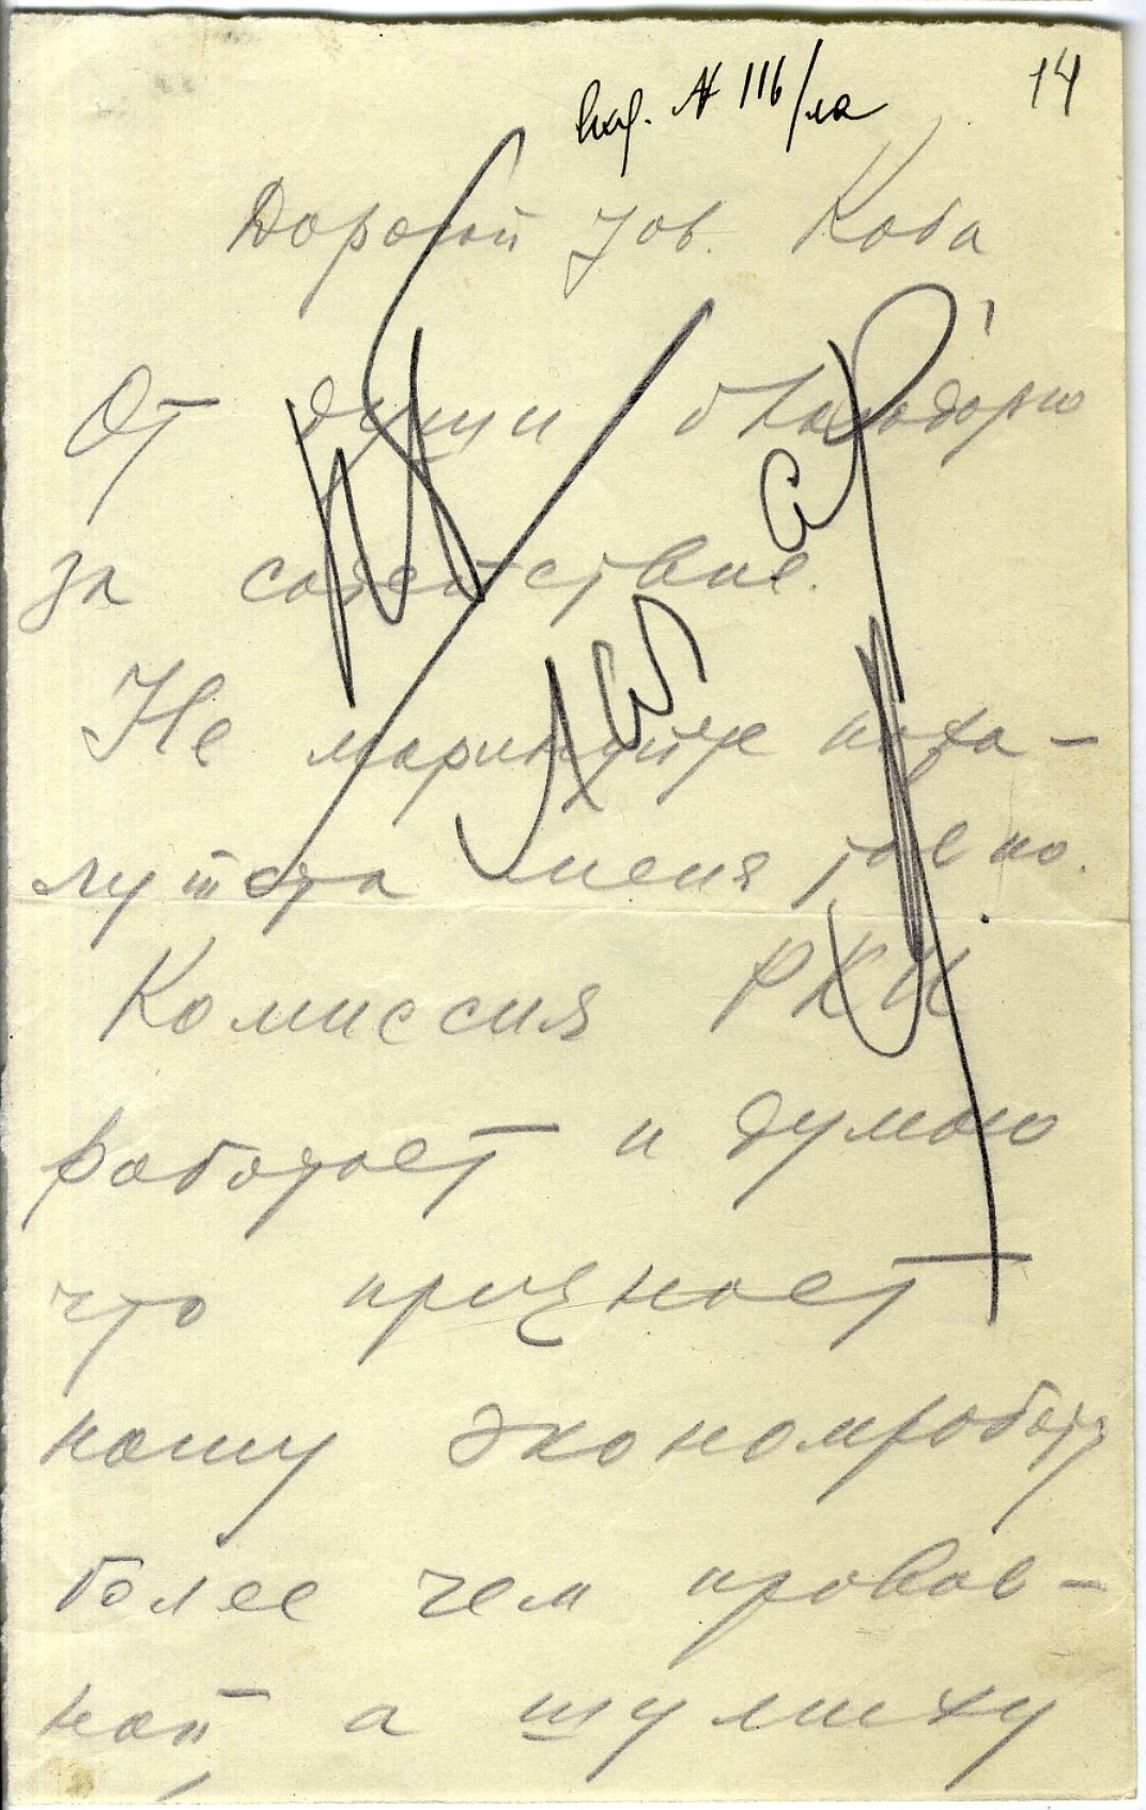 вход. № 116/ла 14
Дорогой Тов. Коба
От души благодарю
за содействие.
Не маринуйте пожа-
луйста меня
Комиссия РКИ
работает и думаю
что признает
нашу экономработу
более чем
ной а шумиху